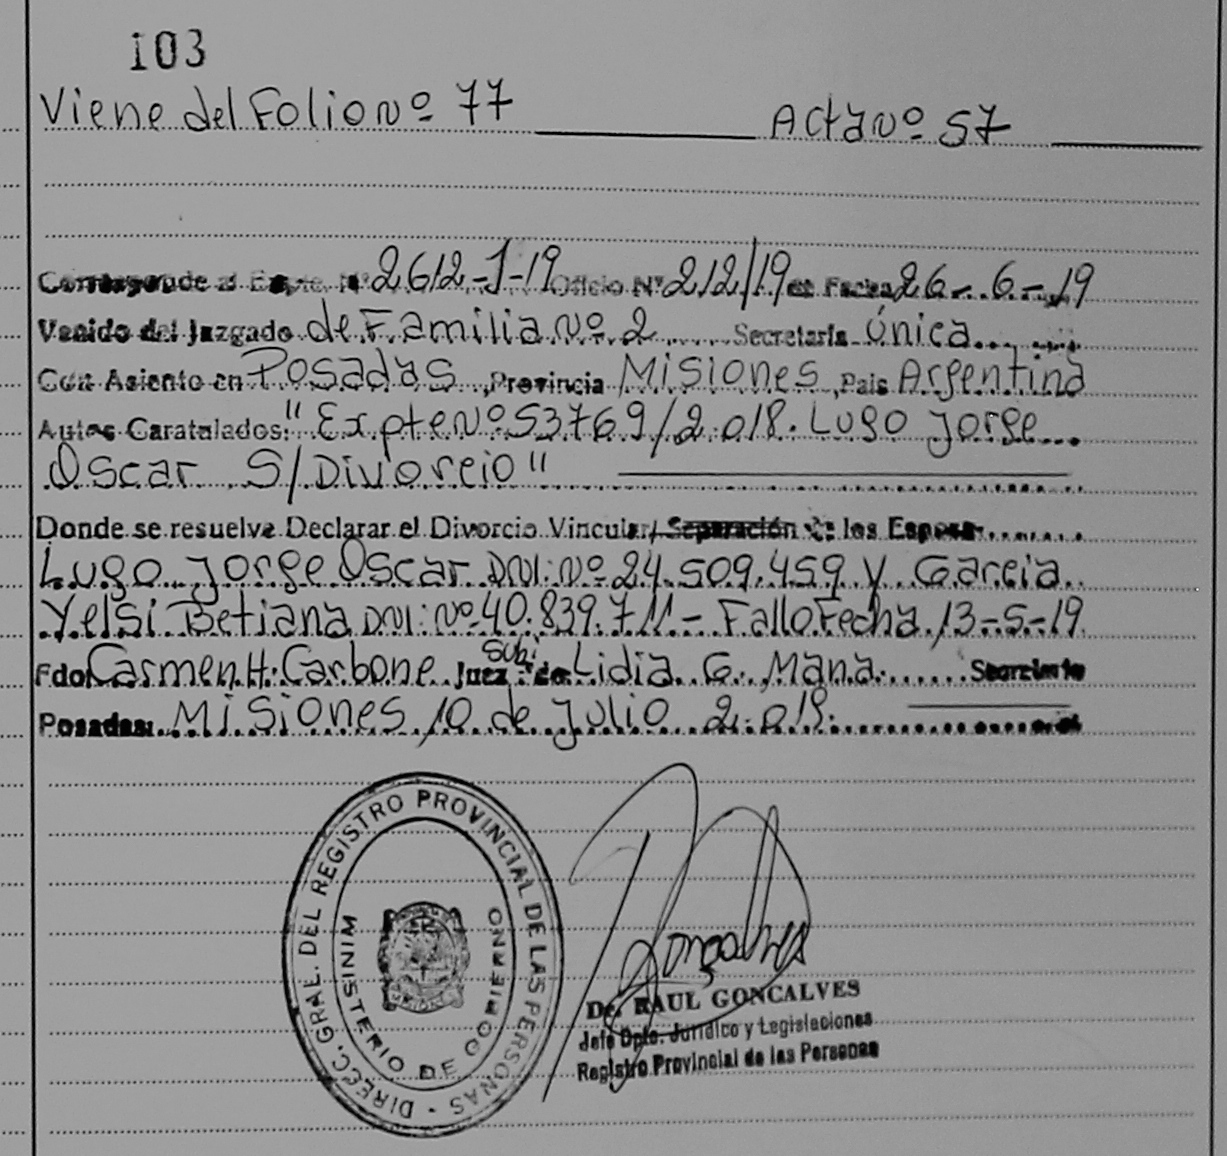 103
Viene del Folio Nº 77 Acta Nº 57
Corresponde al Expte. Nº 2612-J-19 Oficio Nº 212/19 en Fecha 26-6-19
Venido del Juzgado de Familia Nº 2 Secretaría Única
Con Asiento en Posadas, Provincia Misiones, País Argentina
Autos Caratulados: "Expte Nº 53769/2.018. Lugo Jorge
Oscar S/Divorcio"
Donde se resuelve Declarar el Divorcio Vincular/ Separación de los Esposos
Lugo Jorge Oscar DNI: Nº 24.509.459 y Garcia
Yelsi Betiana DNI: Nº 40.839.711 - Fallo Fecha 13-5-19
Fdo Carmen H. Carbone Juez Sub: de Lidia G. Mana Secretario
Posadas: Misiones 10 de Julio 2.019.
DIRECC. GRAL. DEL REGISTRO PROVINCIAL DE LAS PERSONAS -
MINISTERIO DE GOBIERNO
Dr. RAUL GONCALVES
Jefe Dpto. Jurídico y Legislaciones
Registro Provincial de las Personas